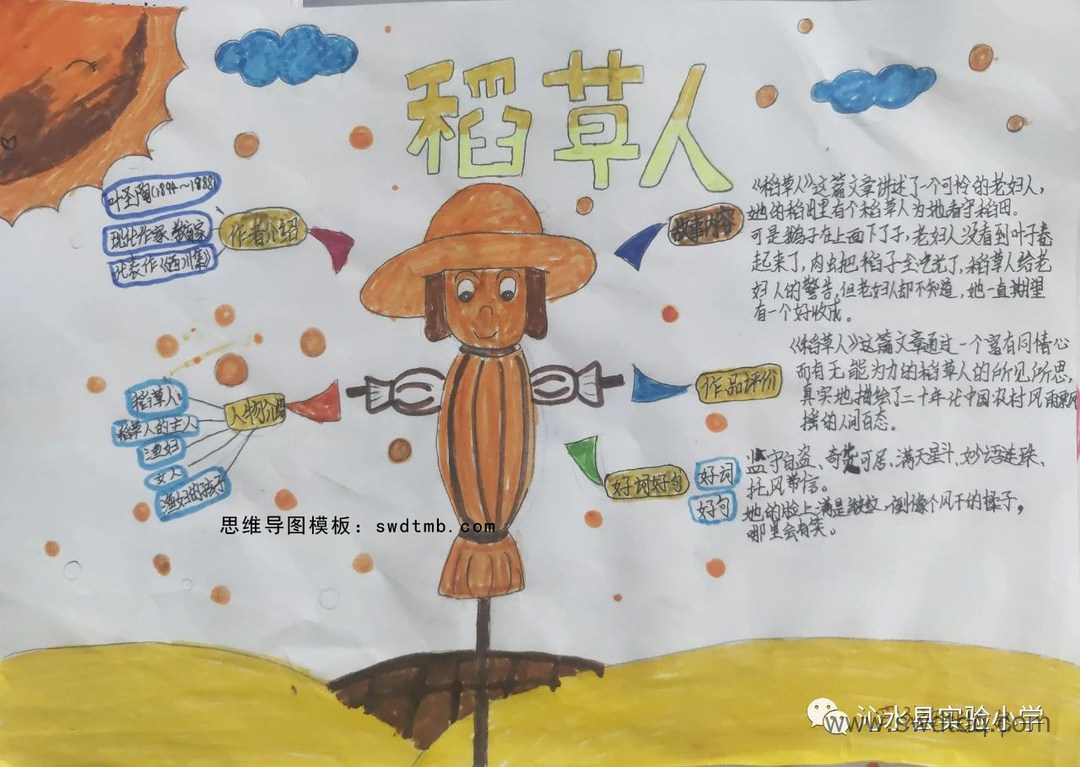 稻草人
叶圣陶(1894～1988)
现代作家 教育家
代表作《西川集》
作者介绍
稻草人
稻草人的主人
渔妇
女人
渔妇的孩子
人物介绍
故事内容
《稻草人》这篇文章讲述了一个可怜的老妇人，
她的稻田里有个稻草人为她看守稻田。
可是蛾子在上面下了子，老妇人没看到叶子卷
起来了，肉虫把稻子全吃光了，稻草人给老
妇人的警告，但老妇人却不知道，她一直期望
有一个好收成。
作品评价
《稻草人》这篇文章通过一个富有同情心
而有无能为力的稻草人的所见所思，
真实地描绘了二十年代中国农村风雨飘
摇的人间百态。
好词好句
好词
监守自盗、奇货可居、满天星斗、妙语连珠、
托风带信。
好句
她的脸上满是皱纹，倒像个风干的橘子，
哪里会有笑。
思维导图模板：swdtmb.com
沁水县实验小学